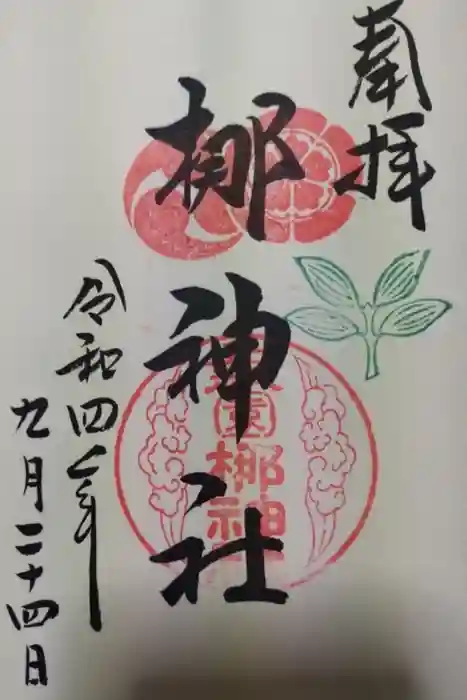 奉拝
梛神社
元祇園梛神社
令和四年
九月二十四日